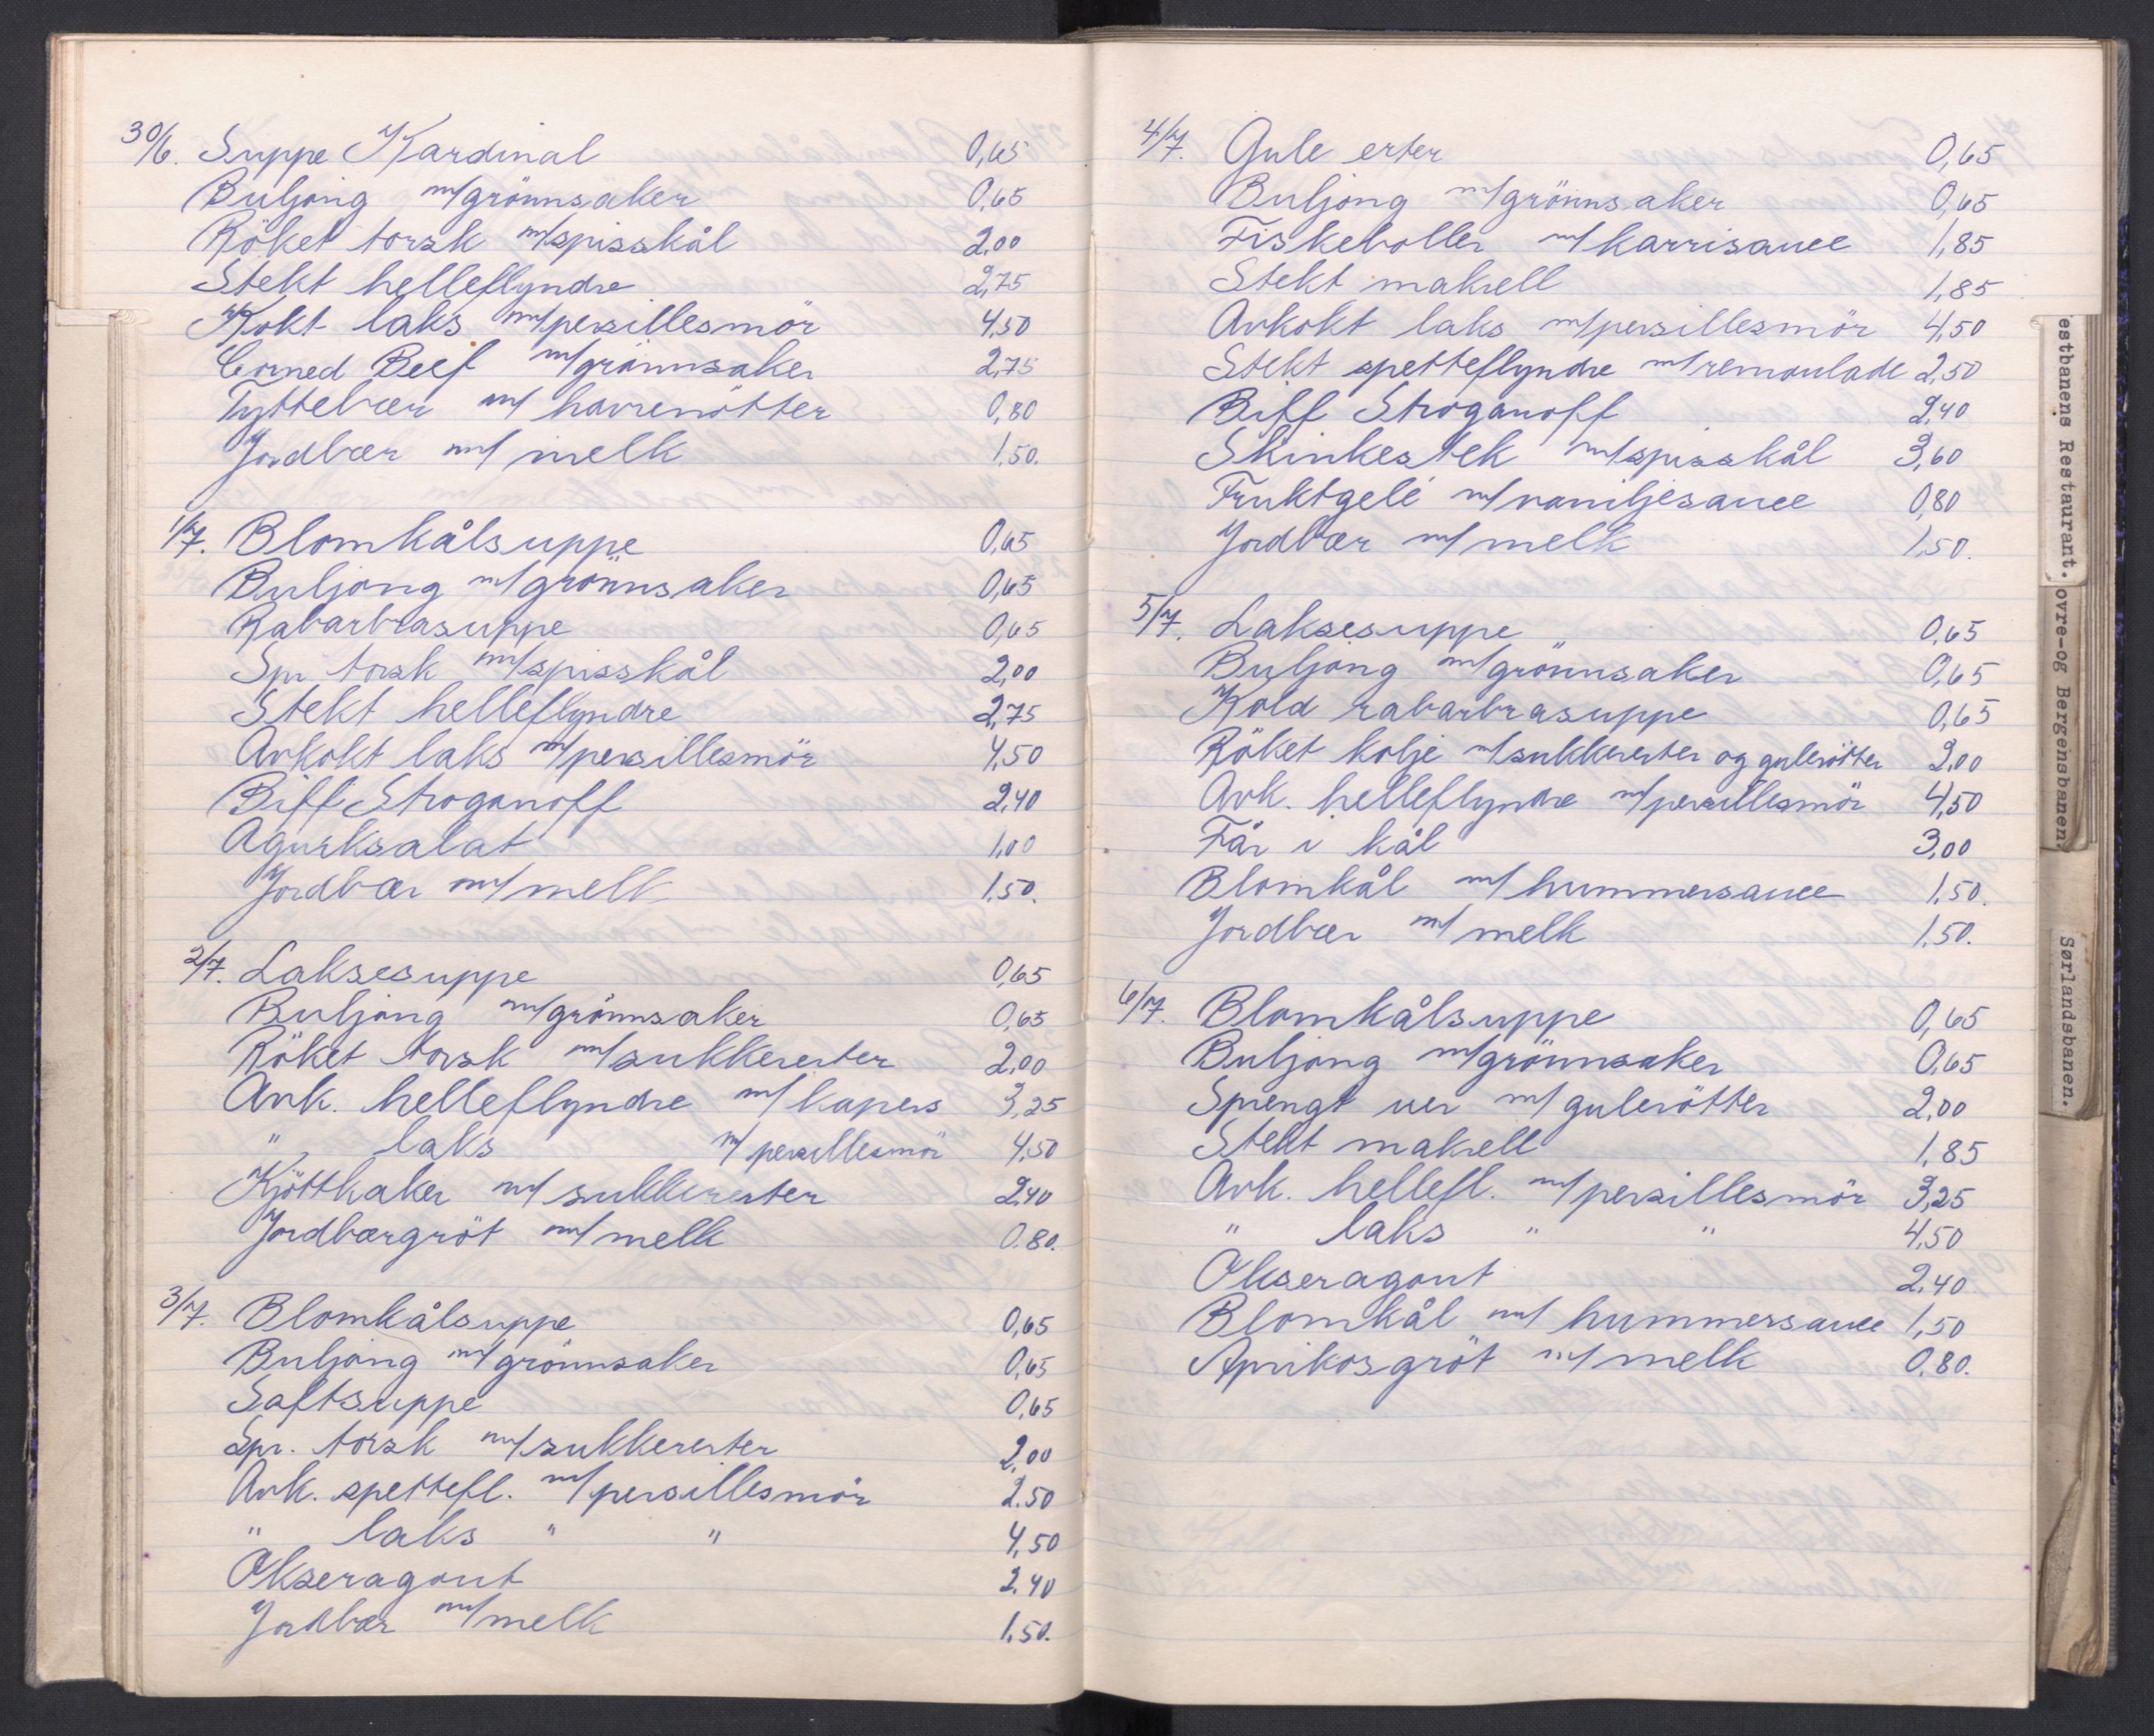 30/6. Suppe Kardinal 0,65
Buljong m/grönnsaker 0,65
Röket torsk m/spisskål 2,00
Stekt helleflyndre 2,75
Kokt laks m/persillesmör 4,50
Corned Beef m/grönnsaker 2,75
Tyttebær m/ havrenötter 0,80
Jordbær m/ melk 1.50.
1/7. Blomkålsuppe 0,65
Buljong m/grönnsaker 0,65
Rabarbrasuppe 0,65
Spr. torsk m/spisskål 2,00
Stekt helleflyndre 2,75
Avkokt laks m/persillesmör 4,50
Biff Stroganoff 2,40
Agurksalat 1,00
Jordbær m/melk 1.50.
2/7. Laksesuppe 0,65
Buljong m/grönnsaker 0,65
Röket torsk m/sukkererter 2,00
Avk. helleflyndre m/kapers 3,25
" laks m/ persillesmör 4,50
Kjöttkaker m/ sukkererter 2,40
Jordbærgröt m/melk 0.80.
3/7. Blomkålsuppe 0,65
Buljong m/grönnsaker 0,65
Saftsuppe 0,65
Spr. torsk m/sukkererter 2,00
Avk. spettefl. m/persillesmör 2.50
" laks " " 4,50
Okseragout 2.40
Jordbær m/melk 1.50.
4/7. Gule erter 0,65
Buljong m/grönnsaker 0,65
Fiskeboller m/karrisauce 1,85
Stekt makrell 1,85
Avkokt laks m/persillesmör 4,50
Stekt spetteflyndre m/remoulade 2,50
Biff Stroganoff 2,40
Skinkestek m/spisskål 3,60
Fruktgelé m/vaniljesauce 0,80
Jordbær m/melk 1,50.
5/7. Laksesuppe 0,65
Buljong m/grönnsaker 0,65
Kold rabarbrasuppe 0,65
Röket kolje m/sukkererter og gulerötter 2,00
Avk. helleflyndre m/persillesmör 4,50
Får i kål 3,00
Blomkål m/hummersauce 1,50.
Jordbær m/ melk 1,50.
6/7. Blomkålsuppe 0,65
Buljong m/grönnsaker 0,65
Sprengt uer m/ gulerötter 2,00
Stekt makrell 1,85
Avk. hellefl. m/persillesmör 3,25
" laks " " 4,50
Okseragout 2,40
Blomkål m/ hummersauce 1,50
Aprikosgröt m/melk 0.80.
estbanens Restaurant.
ovre-og Bergensbanen.
Sørlandsbanen.